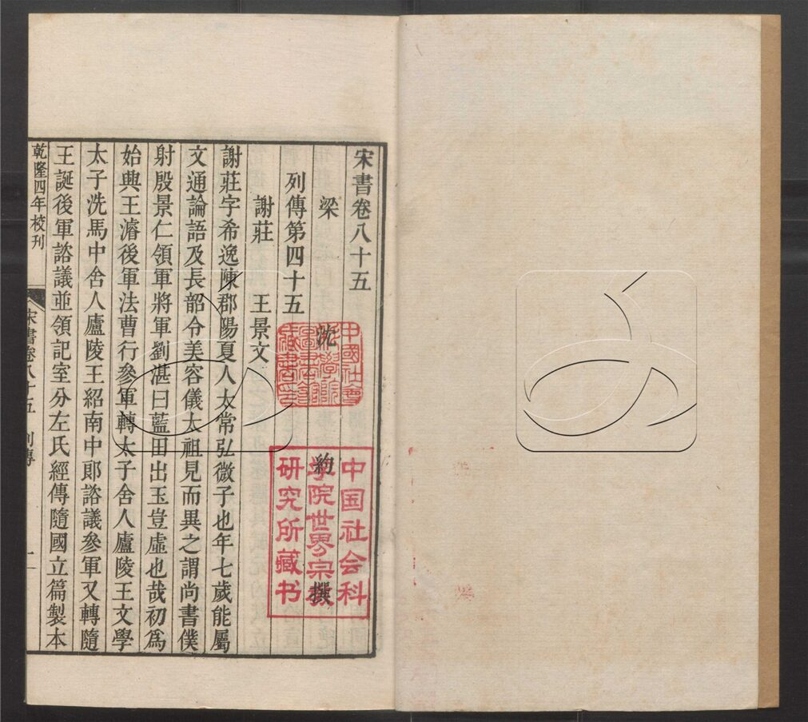 宋書卷八十五
梁 沈 約 撰
列傳第四十五
謝莊 王景文
謝莊字希逸陳郡陽夏人太常弘微子也年七歲能屬
文通論語及長韶令美容儀太祖見而異之謂尚書僕
射殷景仁領軍將軍劉湛曰藍田出玉豈虛也哉初為
始興王濬後軍法曹行參軍轉太子舍人廬陵王文學
太子洗馬中舍人廬陵王紹南中郎諮議參軍又轉隨
王誕後軍諮議並領記室分左氏經傳隨國立篇製本
乾隆四年校刊
宋書卷八十五 列傳
一
中國社會
科學院
圖書館
藏書印
中国社会科
学院世界宗教
研究所藏书